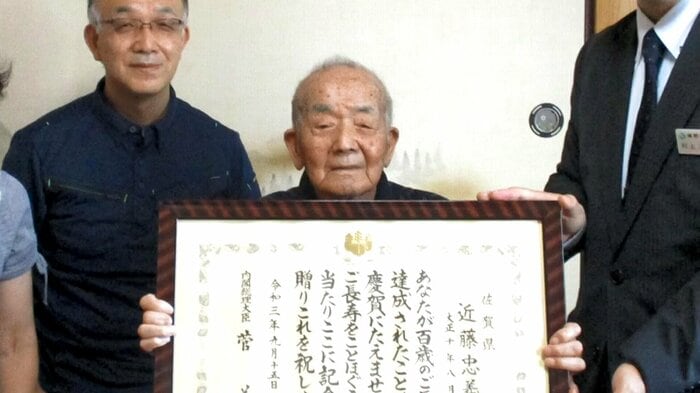 佐賀県
近藤忠義
大正十年八月
あなたが百歳のご
達成されたこと
慶賀にたえませ
ご長寿をことほぐ
当たりここに記念
贈りこれを祝し
令和三年九月十五日
内閣総理大臣 菅